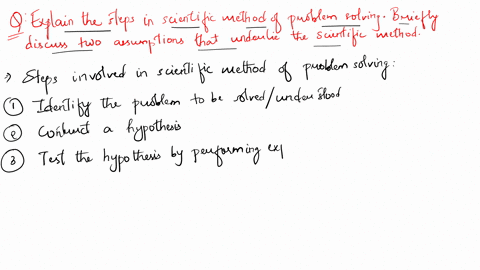 Q: Explain the steps in scientific method of problem solving. Briefly
discuss two assumptions that underlie the scientific method.
→ Steps involved in scientific method of problem solving:
① Identify the problem to be solved/understood
② Construct a hypothesis
③ Test the hypothesis by performing exp